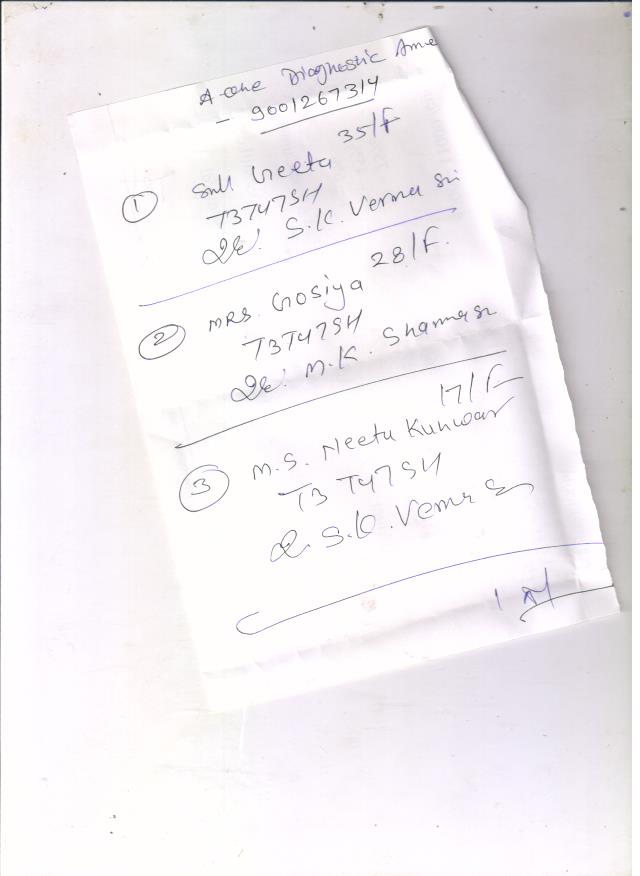 Diagnostic
- 9001267314
① Smt Geeta 35/F
T3T4TSH
Dr. S.K. Verma Sir
② MRS. Gosiya 28/F.
T3T4TSH
Dr. M.K. Sharma Sr
17/F
③ M.S. Neetu Kunwar
T3 T4TSH
Dr. S.K. Verma Sr